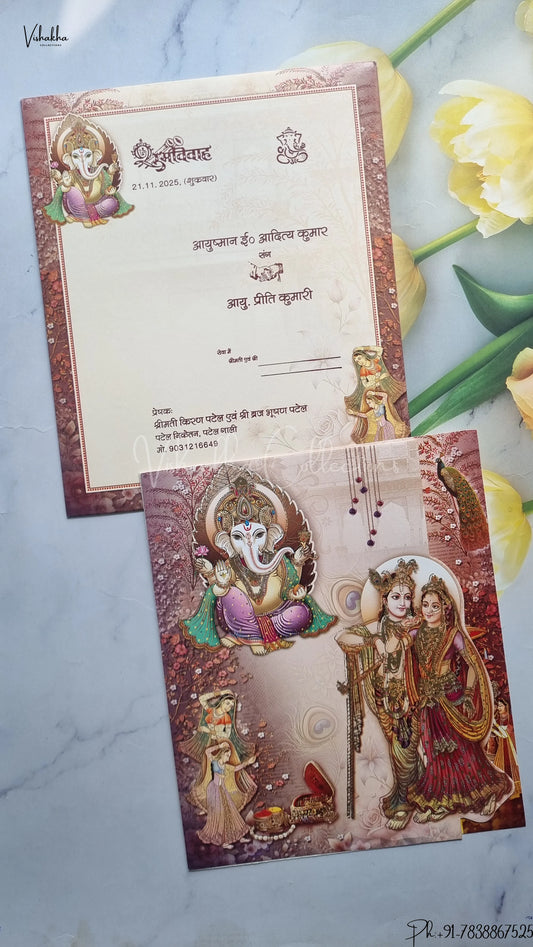 Vishakha
COLLECTIONS
शुभविवाह
21.11.2025, (शुक्रवार)
आयुष्मान ई० आदित्य कुमार
संग
आयु. प्रीति कुमारी
सेवा में
श्रीमती एवं श्री
प्रेषक:
श्रीमती किरण पटेल एवं श्री ब्रज भूषण पटेल
पटेल निकेतन, पटेल गली
मो. 9031216649
Vishakha Collections
Ph:+91-7838867525